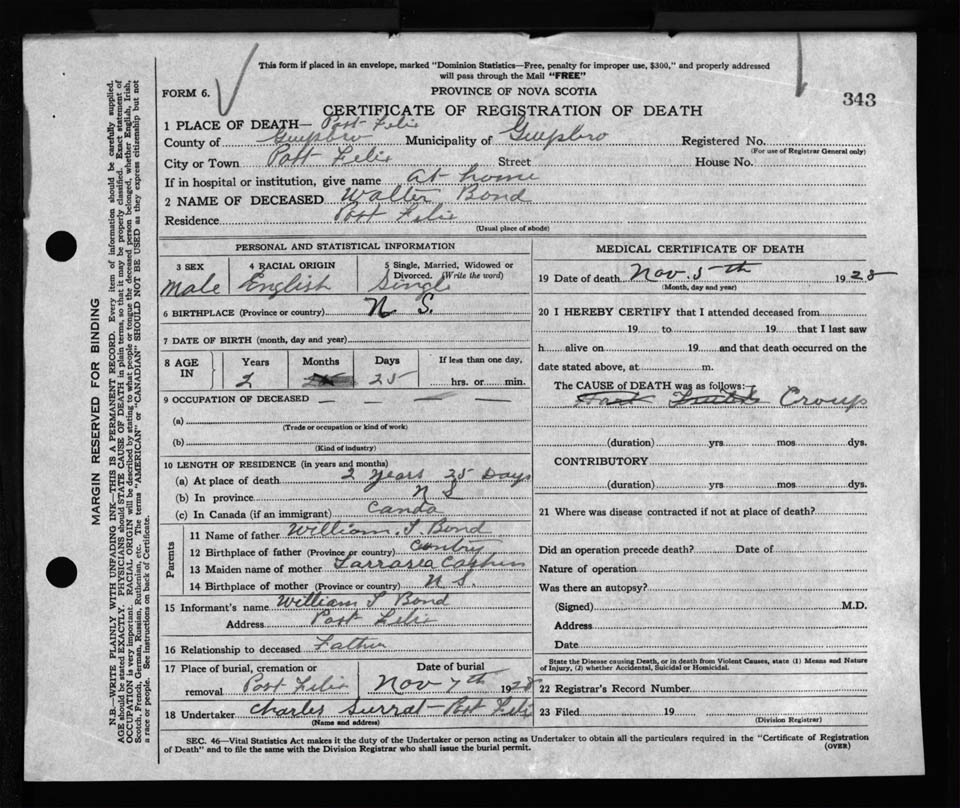 This form if placed in an envelope, marked "Dominion Statistics—Free, penalty for improper use, $300," and properly addressed
will pass through the Mail "FREE"
FORM 6.
PROVINCE OF NOVA SCOTIA
343
CERTIFICATE OF REGISTRATION OF DEATH
1 PLACE OF DEATH— Port Felix
County of Guysboro Municipality of Guysboro Registered No.
(For use of Registrar General only)
City or Town Port Felix Street House No.
If in hospital or institution, give name at home
2 NAME OF DECEASED Walter Bond
Residence Port Felix
(Usual place of abode)
PERSONAL AND STATISTICAL INFORMATION
3 SEX 4 RACIAL ORIGIN 5 Single, Married, Widowed or
Divorced. (Write the word)
Male English Single
6 BIRTHPLACE (Province or country) N S.
7 DATE OF BIRTH (month, day and year)
8 AGE IN Years Months Days If less than one day,
2 25 hrs. or min.
9 OCCUPATION OF DECEASED — — — —
(a)
(Trade or occupation or kind of work)
(b)
(Kind of industry)
10 LENGTH OF RESIDENCE (in years and months)
(a) At place of death 2 years 25 Days
(b) In province N S
(c) In Canada (if an immigrant) Canda
Parents
11 Name of father William S. Bond
12 Birthplace of father (Province or country)
13 Maiden name of mother
14 Birthplace of mother (Province or country) N S.
15 Informant's name William S Bond
Address Port Felix
16 Relationship to deceased Father
17 Place of burial, cremation or Date of burial
removal Port Felix Nov 7th 1928
18 Undertaker Charles Surrat — Port Felix
(Name and address)
MEDICAL CERTIFICATE OF DEATH
19 Date of death Nov. 5th 1928
(Month, day and year)
20 I HEREBY CERTIFY that I attended deceased from
19 to 19 that I last saw
h alive on 19 and that death occurred on the
date stated above, at m.
The CAUSE of DEATH was as follows:—
Croup
(duration) yrs. mos. dys.
CONTRIBUTORY
(duration) yrs. mos. dys.
21 Where was disease contracted if not at place of death?
Did an operation precede death? Date of
Nature of operation
Was there an autopsy?
(Signed) M.D.
Address
Date
State the Disease causing Death, or in death from Violent Causes, state (1) Means and Nature
of Injury, (2) whether Accidental, Suicidal or Homicidal.
22 Registrar's Record Number
23 Filed 19
(Division Registrar)
SEC. 46—Vital Statistics Act makes it the duty of the Undertaker or person acting as Undertaker to obtain all the particulars required in the "Certificate of Registration
of Death" and to file the same with the Division Registrar who shall issue the burial permit.
(OVER)
MARGIN RESERVED FOR BINDING
N.B.—WRITE PLAINLY WITH UNFADING INK—THIS IS A PERMANENT RECORD. Every item of information should be carefully supplied.
AGE should be stated EXACTLY. PHYSICIANS should STATE CAUSE OF DEATH in plain terms, so that it may be properly classified. Exact statement of
OCCUPATION is very important. RACIAL ORIGIN will be described by stating to what people or tongue the deceased person belonged, whether English, Irish,
Scotch, French, German, Russian, Ruthenian, etc. The terms "AMERICAN" or "CANADIAN" SHOULD NOT BE USED as they express citizenship but not
a race or people. See instructions on back of Certificate.